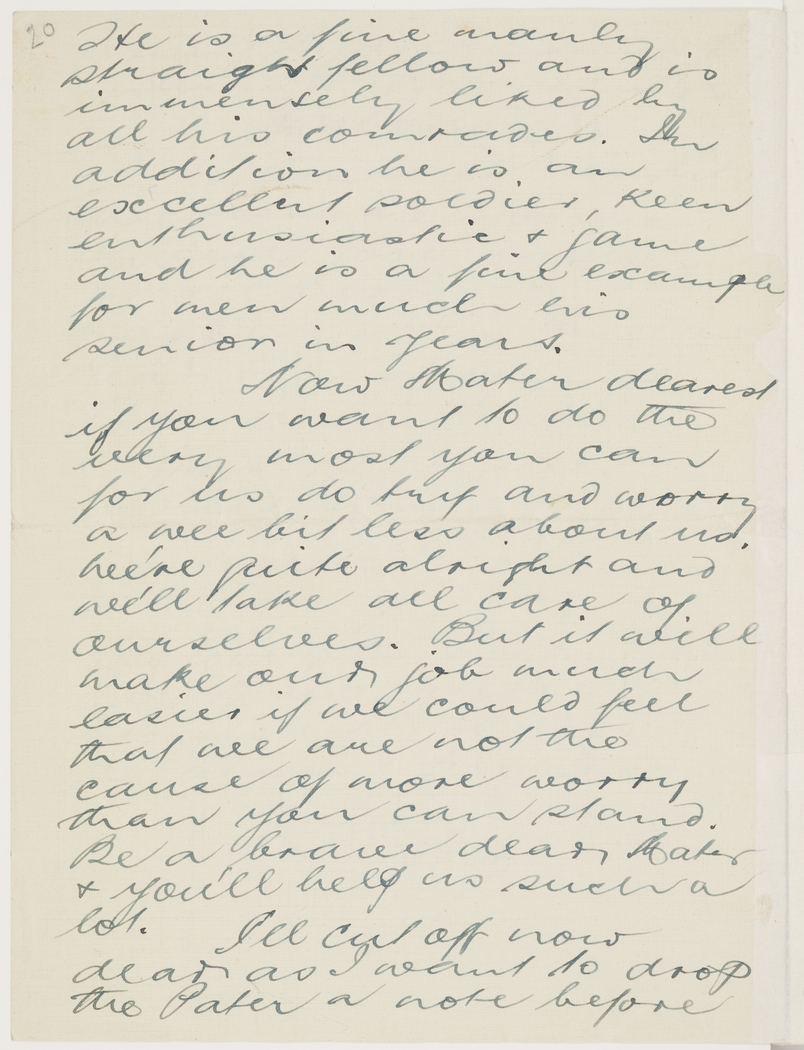 20
He is a fine manly
straight fellow and is
immensely liked by
all his comrades. In
addition he is an
excellent soldier, keen
enthusiastic & game
and he is a fine example
for men much his
senior in years.
Now Mater dearest
if you want to do the
very most you can
for us do try and worry
a wee bit less about us.
We're quite alright and
we'll take all care of
ourselves. But it will
make our job much
easier if we could feel
that we are not the
cause of more worry
than you can stand.
Be a brave dear Mater
& you'll help us such a
lot. I'll cut off now
dear as I want to drop
the Pater a note before